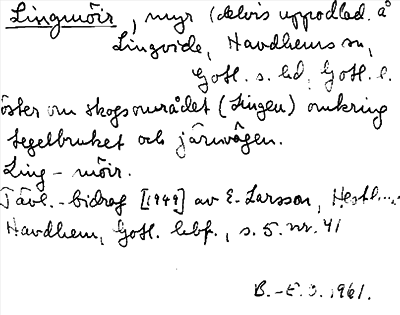 Lingmöir, myr (delvis uppodlad) å
Lingvide, Havdhems sn,
Gotl. s. hd, Gotl. l.
öster om skogsområdet (Lingen) omkring
tegelbruket och järnvägen.
Ling-möir.
Tävl.-bidrag [1949] av E. Larsson,
Havdhem, Gotl. , s. 5. nr. 41
B.-E. O. 1961.